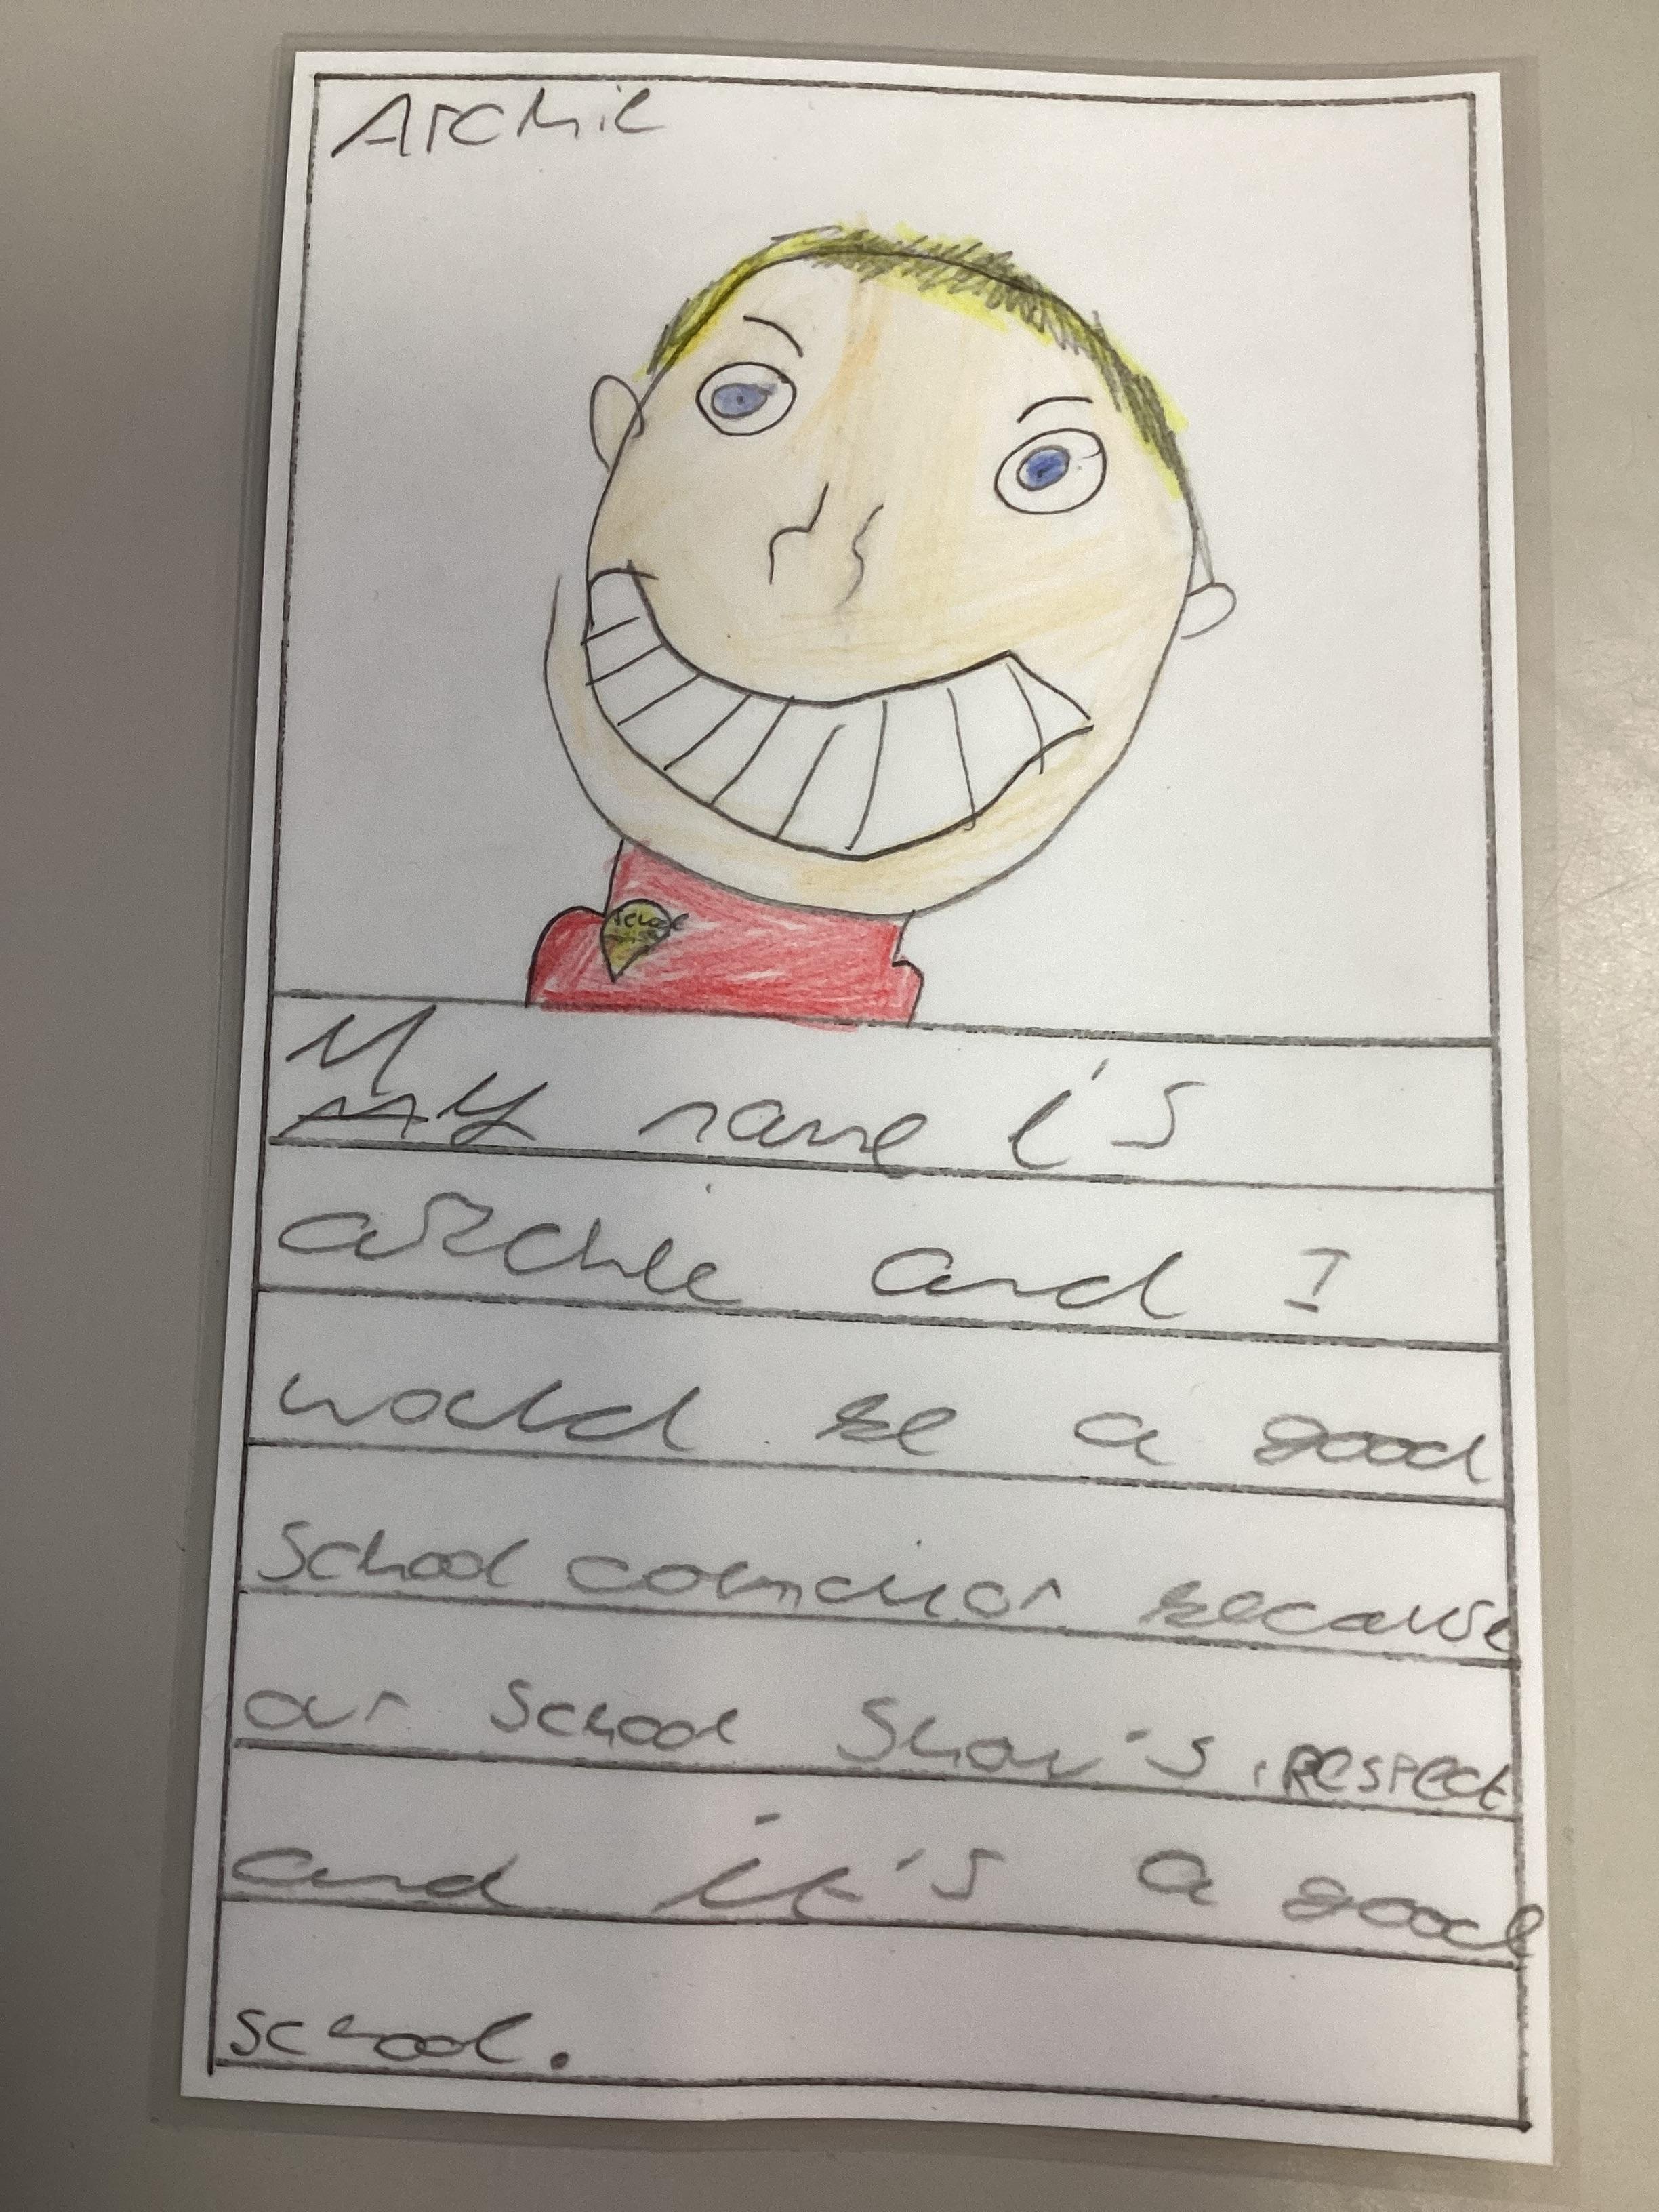 Archie
My name i's
archie and I
would be a good
School councilor because
our School Show's respect
and it's a good
school.